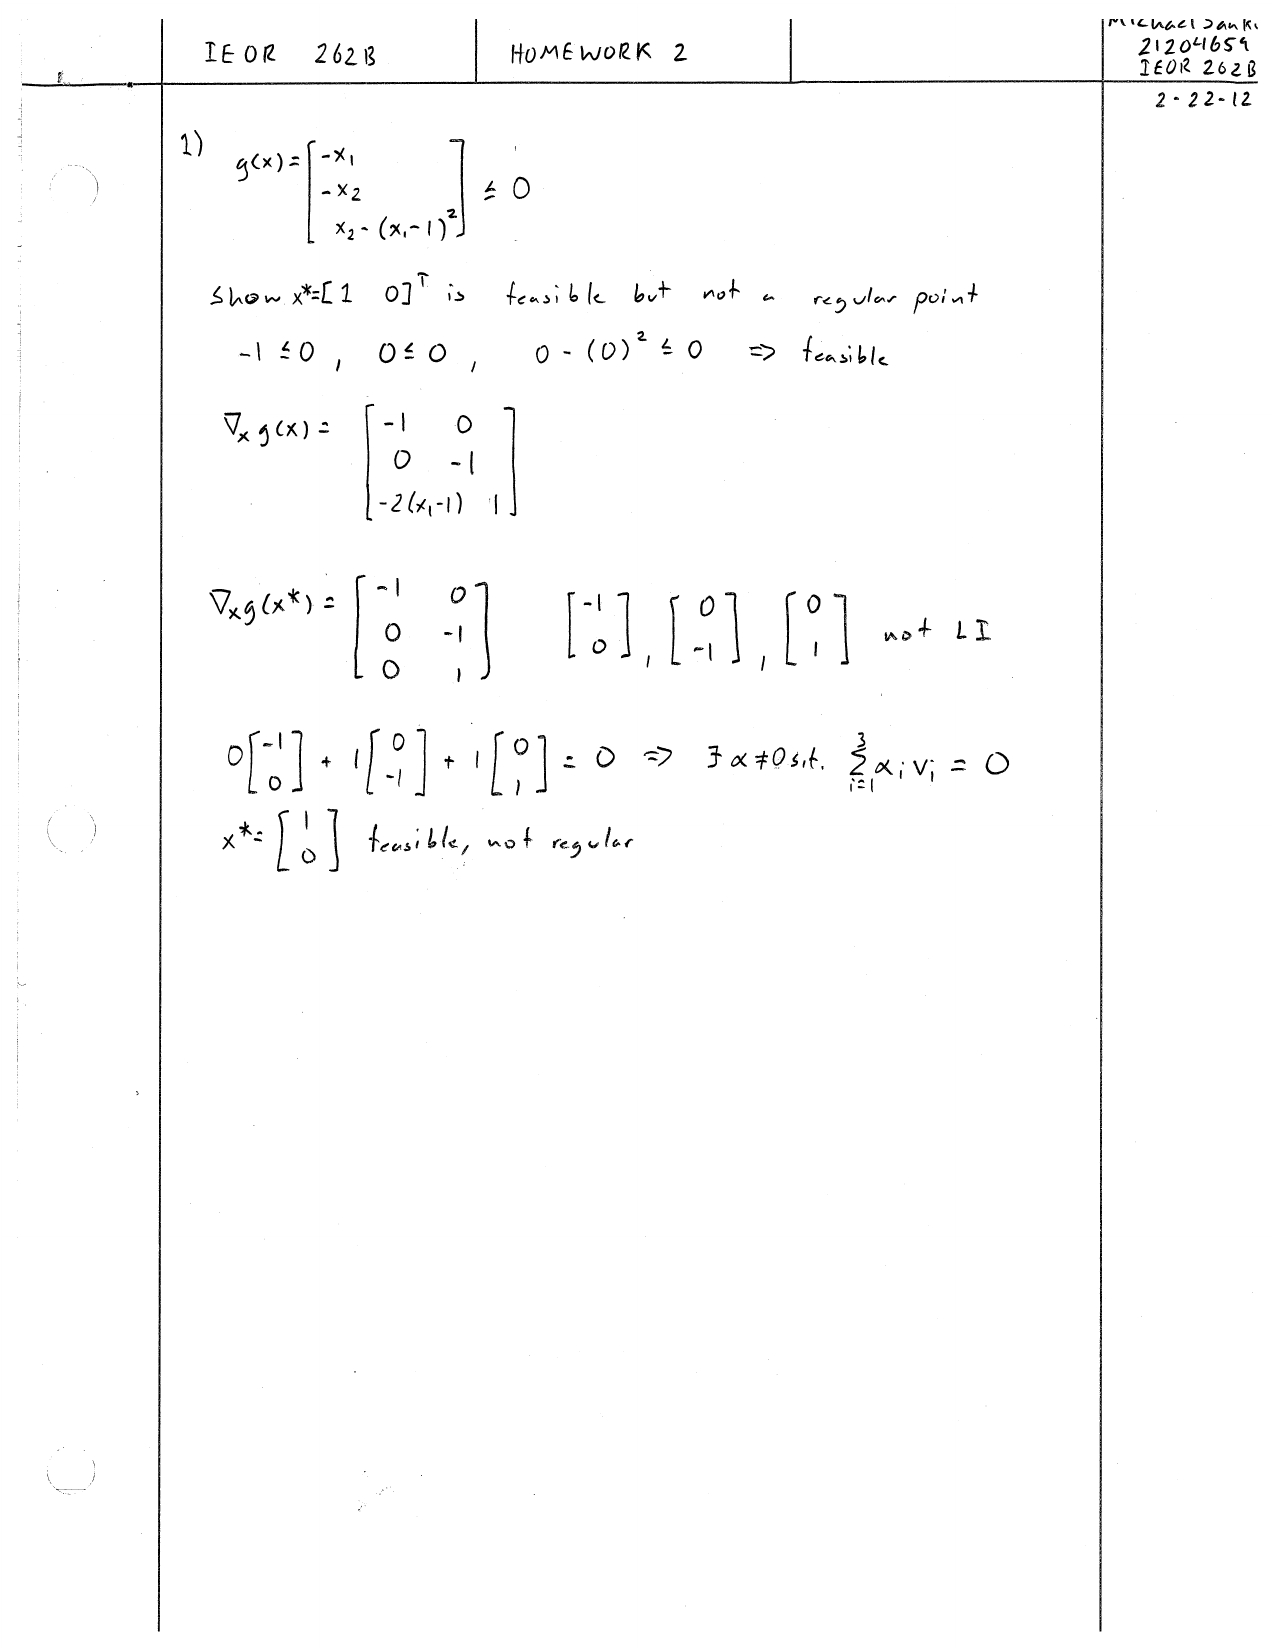 IEOR 262B HOMEWORK 2
Michael
21204659
IEOR 262B
2-22-12
1) g(x) = [-x₁
-x₂
x₂-(x₁-1)²] ≤ 0
show x*=[1 0]ᵀ is feasible but not a regular point
-1≤0, 0≤0, 0-(0)² ≤ 0 ⇒ feasible
∇ₓg(x) = [-1 0
0 -1
-2(x₁-1) 1]
∇ₓg(x*) = [-1 0
0 -1
0 1] [-1
0], [0
-1], [0
1] not LI
0[-1
0] + 1[0
-1] + 1[0
1] = 0 ⇒ ∃ α≠0 s.t. ∑ᵢ₌₁³ αᵢvᵢ = 0
x*=[1
0] feasible, not regular